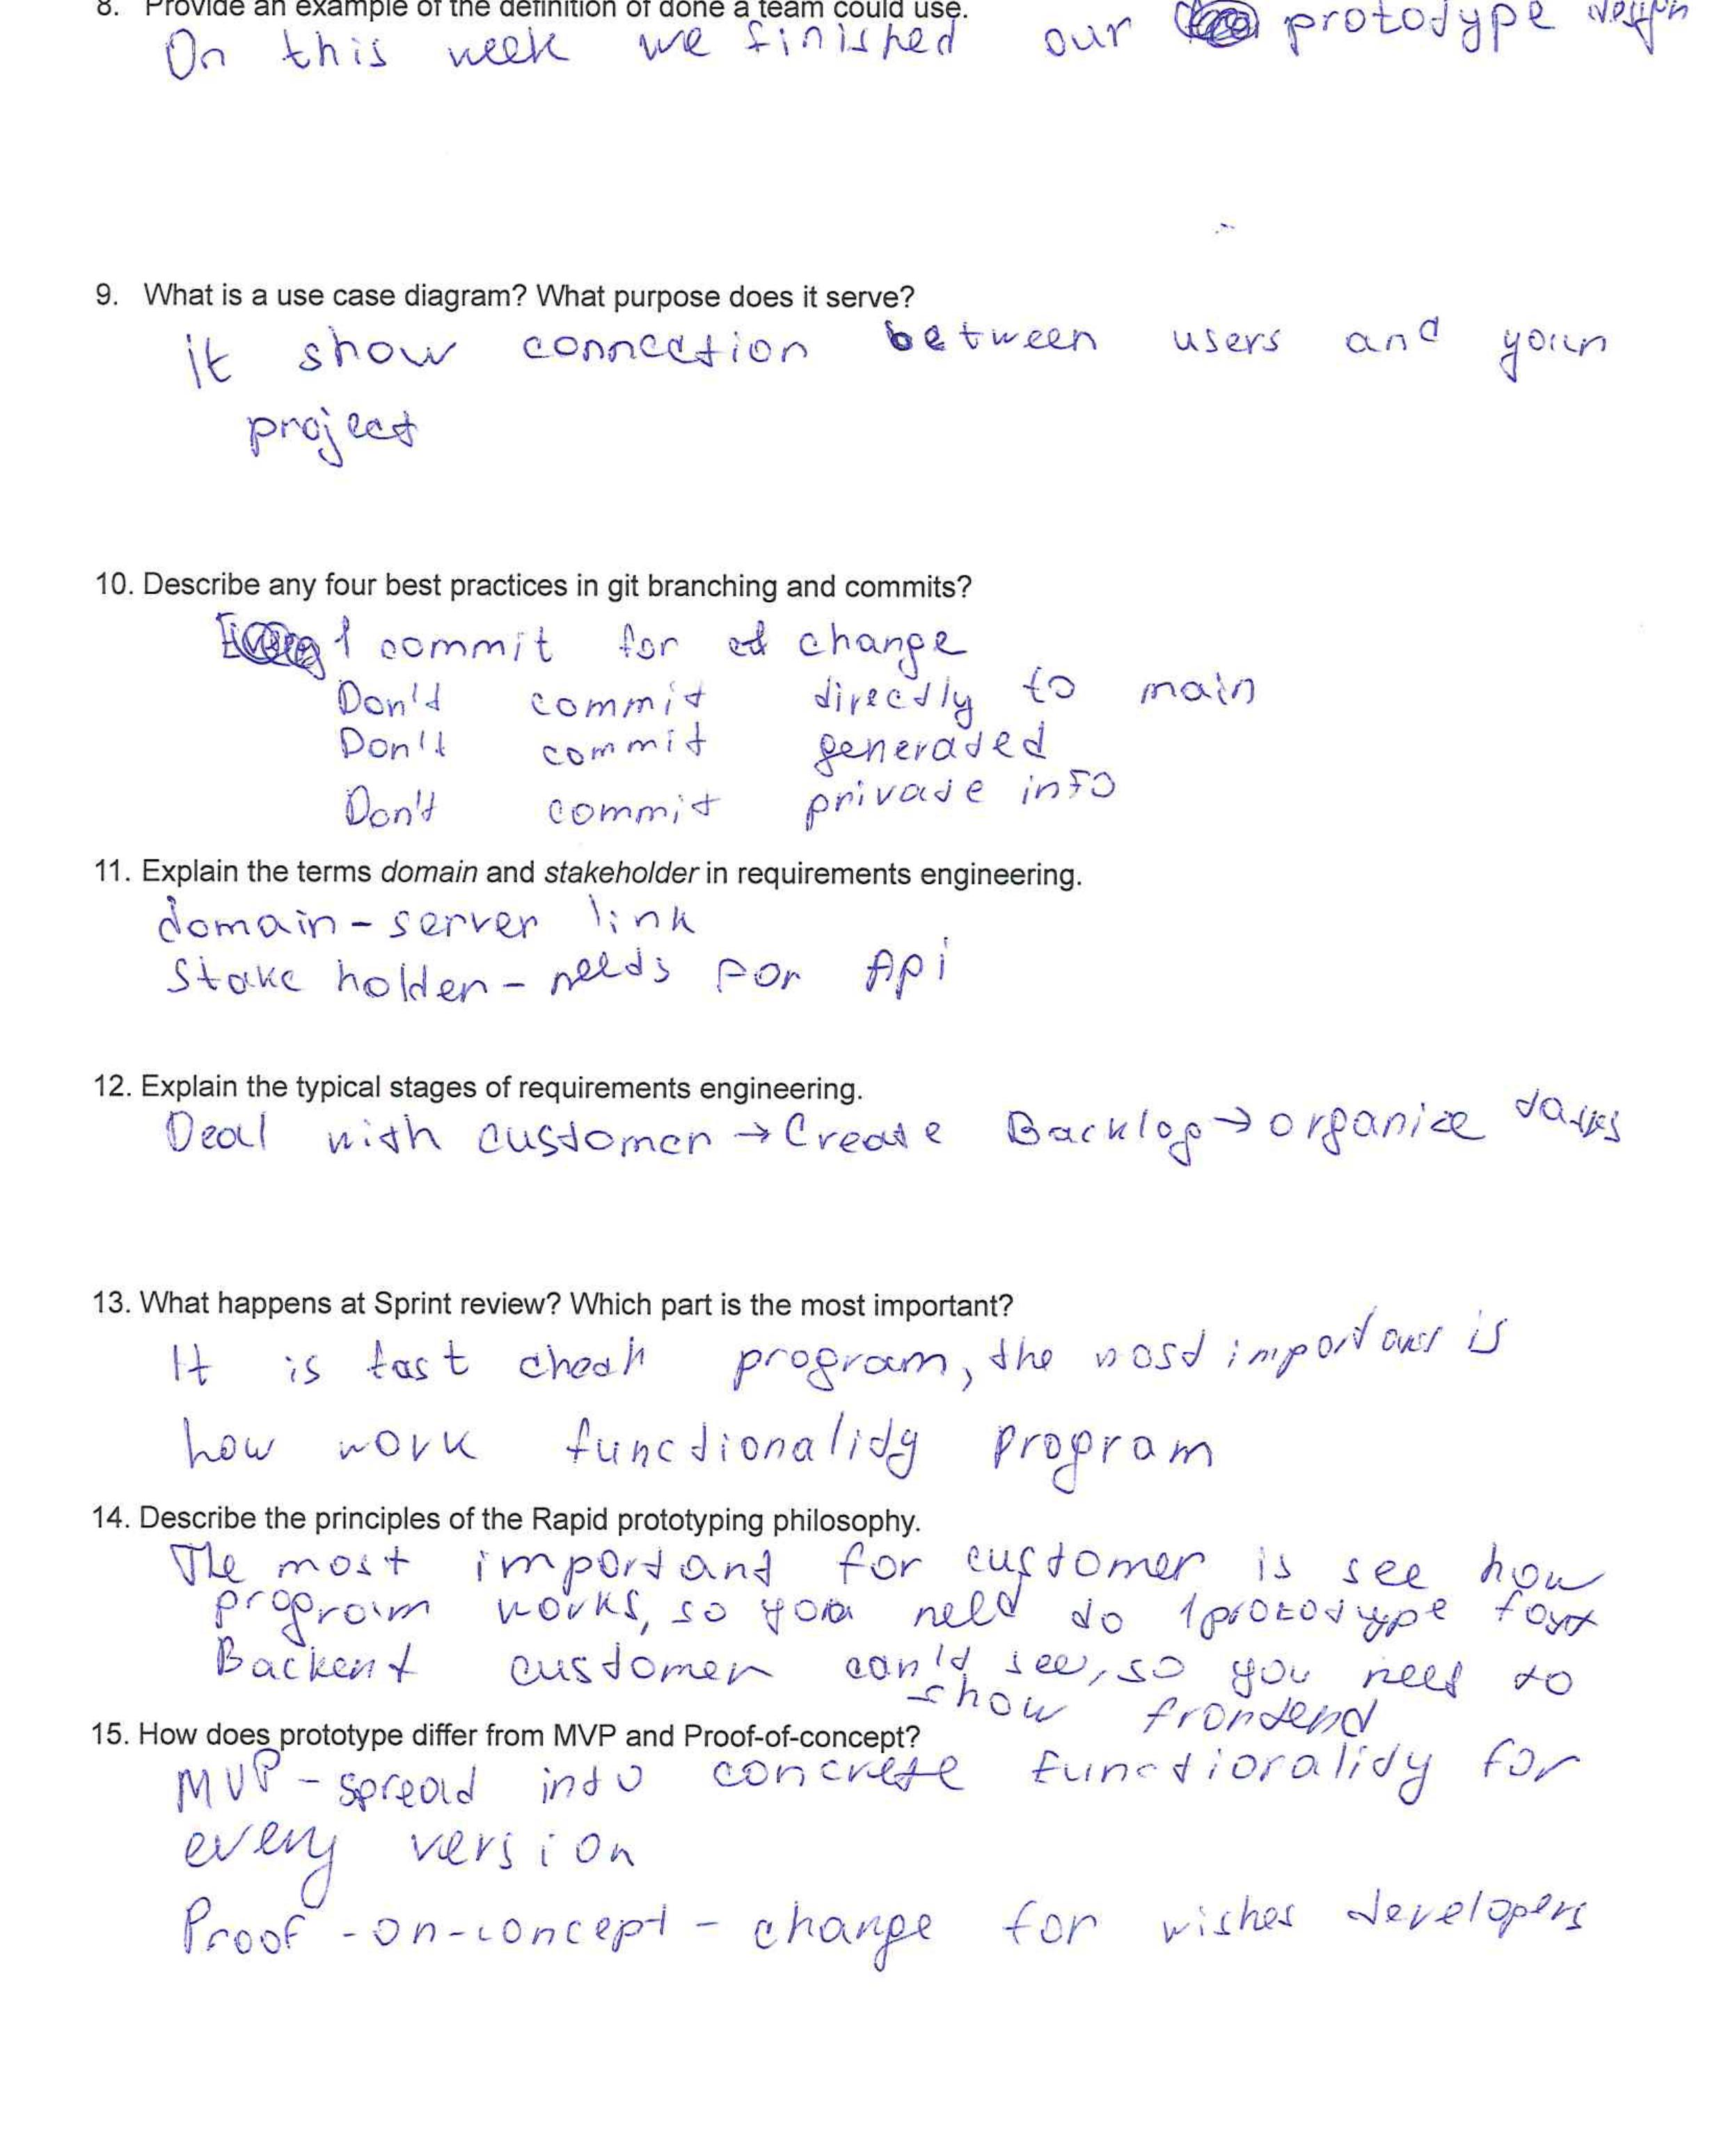 8. Provide an example of the definition of done a team could use.
On this week we finished our prototype design
9. What is a use case diagram? What purpose does it serve?
it show connection between users and your
project
10. Describe any four best practices in git branching and commits?
1 commit for change
Don't commit directly to main
Don't commit generated
Don't commit private info
11. Explain the terms domain and stakeholder in requirements engineering.
domain - server link
Stake holder - needs for Api
12. Explain the typical stages of requirements engineering.
Deal with customer → Create Backlog → organize tasks
13. What happens at Sprint review? Which part is the most important?
It is fast check program, the most important is
how work functionality program
14. Describe the principles of the Rapid prototyping philosophy.
The most important for customer is see how
program works, so you need do 1 prototype fast
Backent customer can't see, so you need to
show frontend
15. How does prototype differ from MVP and Proof-of-concept?
MVP - spread into concrete functionality for
every version
Proof-on-concept - change for wishes developers